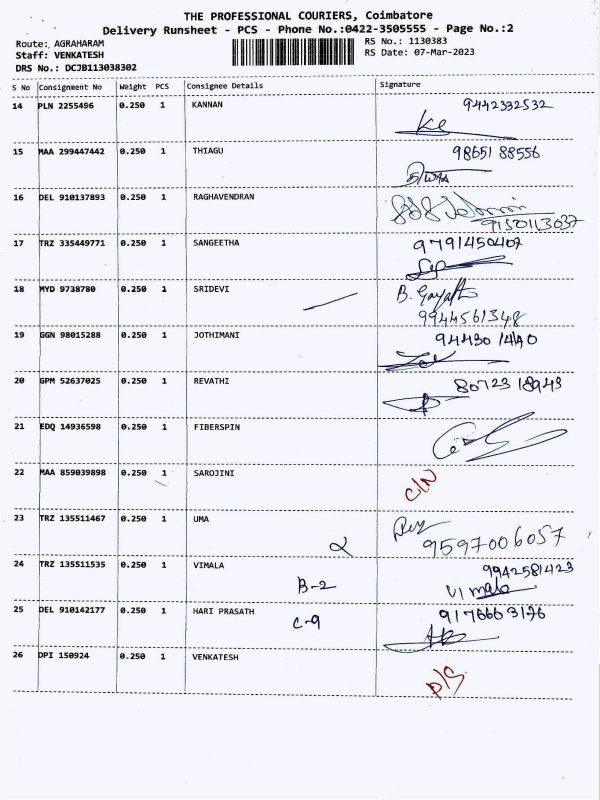 THE PROFESSIONAL COURIERS, Coimbatore
Delivery Runsheet - PCS - Phone No.:0422-3505555 - Page No.:2
Route: AGRAHARAM RS No.: 1130383
Staff: VENKATESH RS Date: 07-Mar-2023
DRS No.: DCJB113038302
S No Consignment No Weight PCS Consignee Details Signature
14 PLN 2255496 0.250 1 KANNAN 9442332532
15 MAA 299447442 0.250 1 THIAGU 98651 88556
16 DEL 910137893 0.250 1 RAGHAVENDRAN
9150113037
17 TRZ 335449771 0.250 1 SANGEETHA 9791450402
18 MYD 9738780 0.250 1 SRIDEVI B. Gayathri
9944561348
19 GGN 98015288 0.250 1 JOTHIMANI 94430 14140
20 GPM 52637025 0.250 1 REVATHI 80723 18943
21 EDQ 14936598 0.250 1 FIBERSPIN
22 MAA 859039898 0.250 1 SAROJINI
C/N
23 TRZ 135511467 0.250 1 UMA
9597006057
24 TRZ 135511535 0.250 1 VIMALA 9942581423
B-2 Vimala
25 DEL 910142177 0.250 1 HARI PRASATH 9176663176
C-9
26 DPI 150924 0.250 1 VENKATESH
P/S